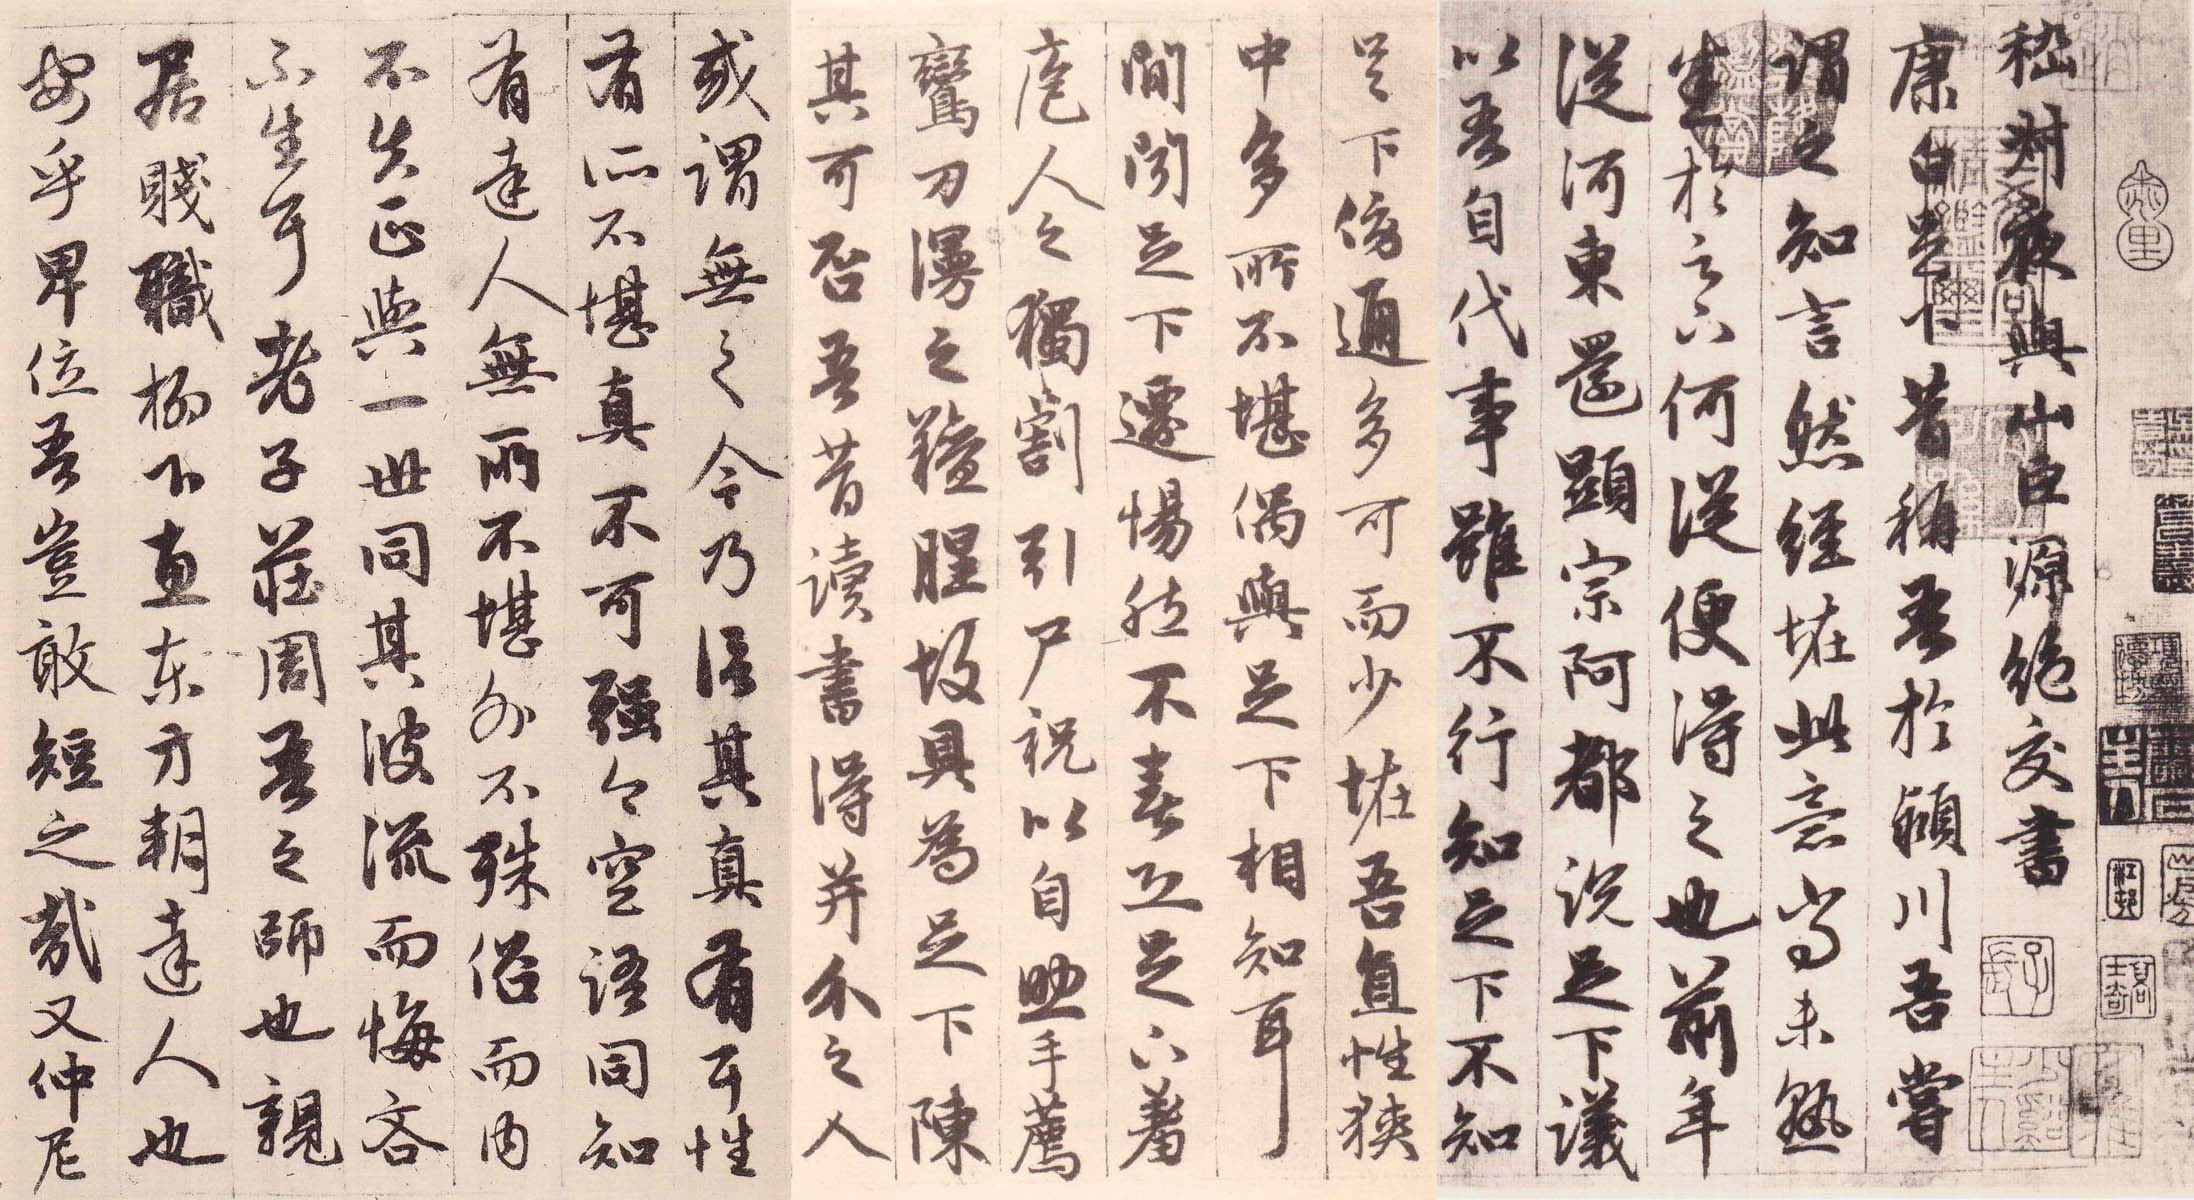 嵇叔夜與山巨源絕交書
康白足下昔稱吾於潁川吾嘗
謂之知言然經恠此意尚未熟
於足下何從便得之也前年
從河東還顯宗阿都說足下議
以吾自代事雖不行知足下不知
足下傍通多可而少恠吾直性狹
中多所不堪偶與足下相知耳
間聞足下遷惕然不喜恐足下羞
庖人之獨割引尸祝以自助手薦
鸞刀漫之羶腥故具為足下陳
其可否吾昔讀書得并介之人
或謂無之今乃信其真有耳性
有所不堪真不可強今空語同知
有達人無所不堪外不殊俗而內
不失正與一世同其波流而悔吝
不生耳老子莊周吾之師也親
居賤職柳下惠東方朔達人也
安乎卑位吾豈敢短之哉又仲尼
江邨
高士奇